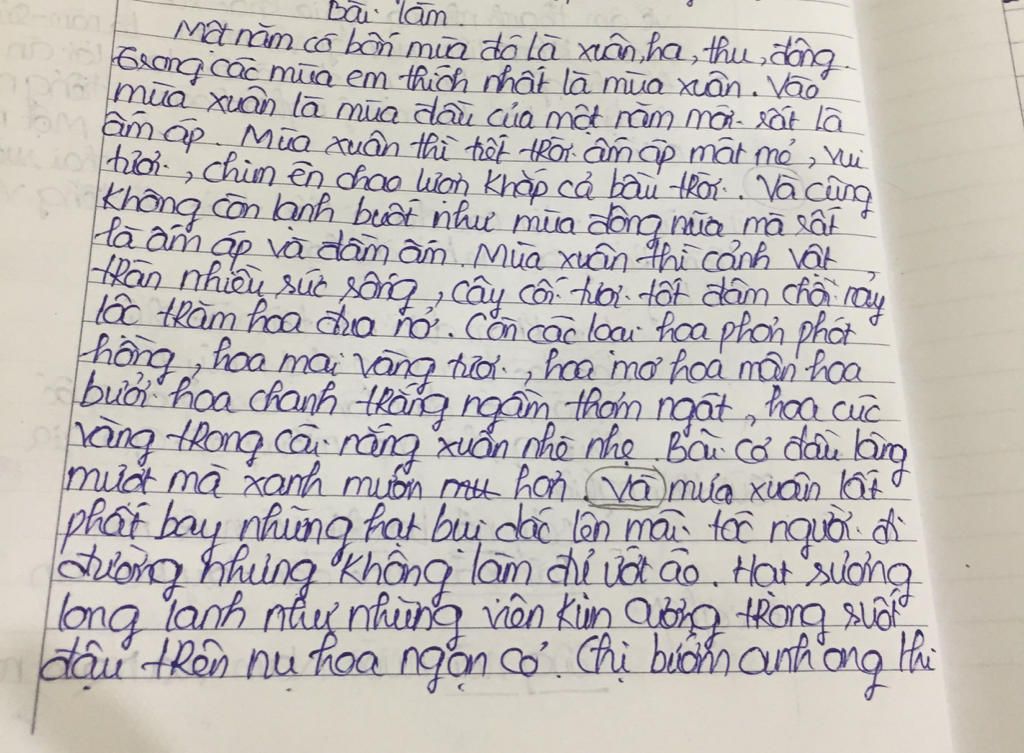 Bài làm
Một năm có bốn mùa đó là xuân, hạ, thu, đông.
trong các mùa em thích nhất là mùa xuân. Vào
mùa xuân là mùa đầu của một năm mới rất là
ấm áp. Mùa xuân thì tiết trời ấm áp mát mẻ, vui
tươi, chim én chao lượn khắp cả bầu trời. Và cũng
không còn lạnh buốt như mùa đông nữa mà rất
là ấm áp và đầm ấm. Mùa xuân thì cảnh vật,
tràn nhiều sức sống, cây cối tươi tốt đâm chồi nảy
lộc trăm hoa đua nở. Còn các loại hoa phơn phớt
hồng, hoa mai vàng tươi, hoa mơ hoa mận hoa
bưởi hoa chanh trắng ngần thơm ngát, hoa cúc
vàng trong cái nắng xuân nhè nhẹ. Bãi cỏ đầu làng
mượt mà xanh muôn hơn. Và mưa xuân lất
phất bay những hạt bụi dắc lên mái tóc người đi
đường nhưng không làm chỉ ướt áo. Hạt sương
long lanh như những viên kim cương trong suốt
đậu trên nụ hoa ngọn cỏ. Chị bướm anh ong thi